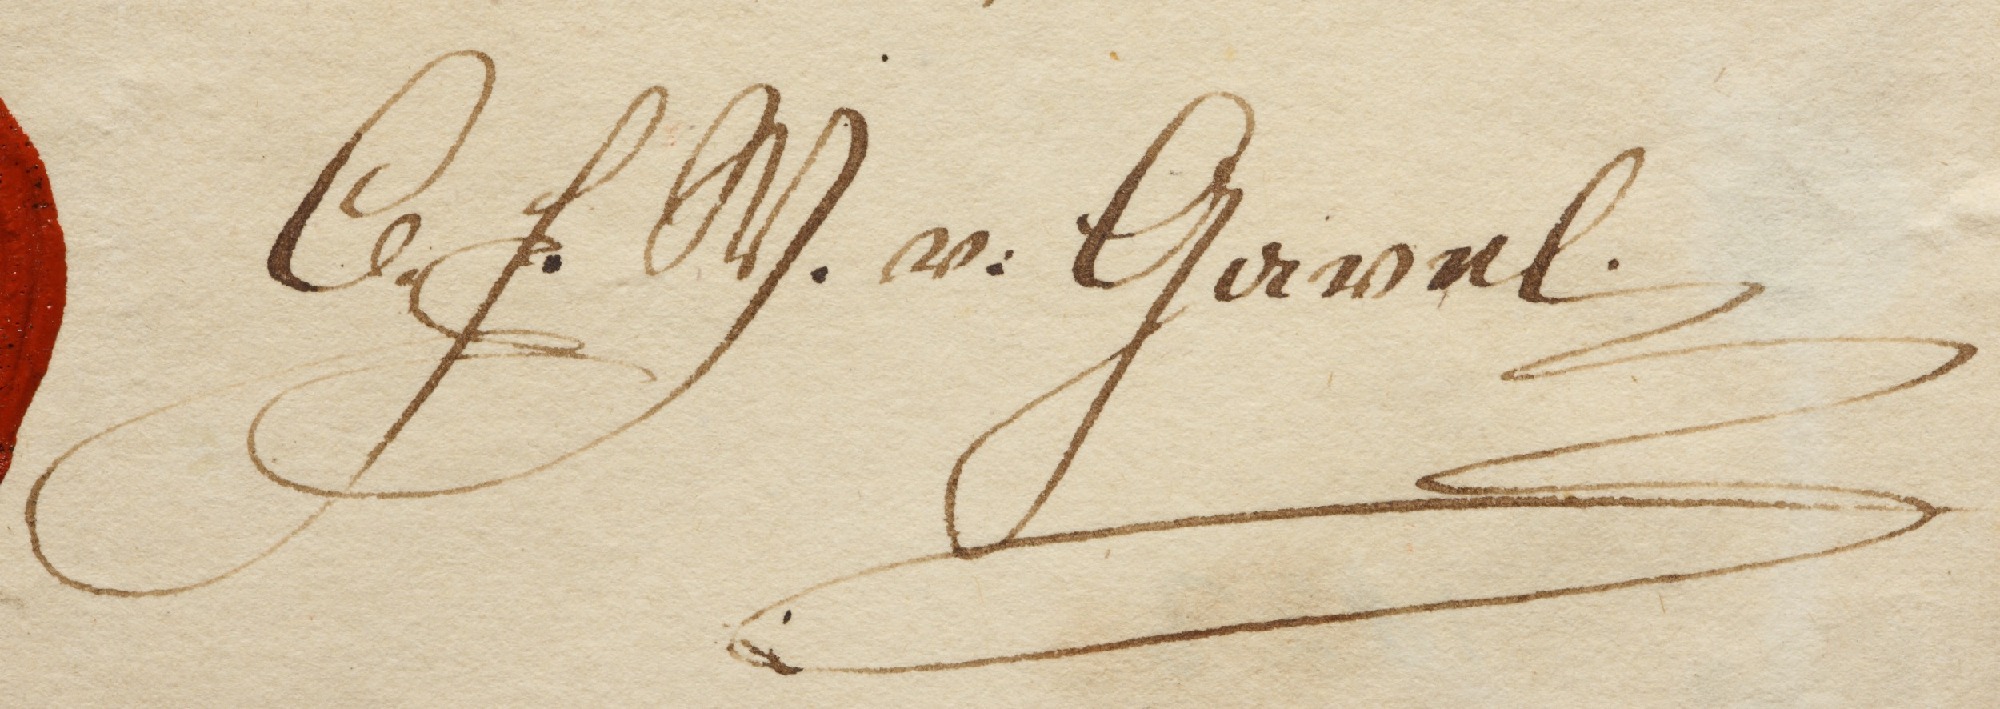 C. f. W. v. Gervel.